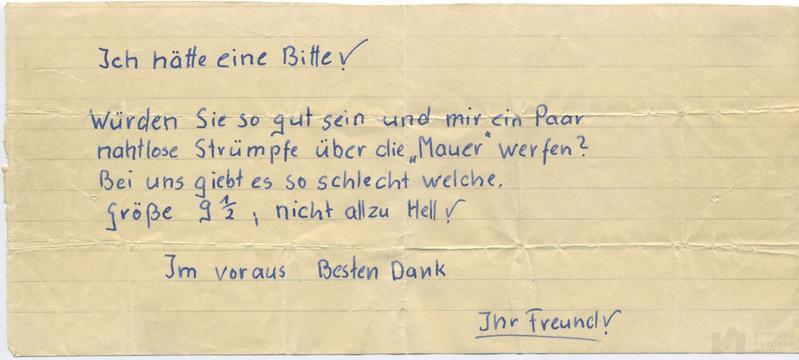 Ich hätte eine Bitte!
Würden Sie so gut sein und mir ein Paar
nahtlose Strümpfe über die „Mauer" werfen?
Bei uns giebt es so schlecht welche.
Größe 9 ½, nicht allzu Hell!
Im voraus Besten Dank
Ihr Freund!
STIFTUNG
BERLINER